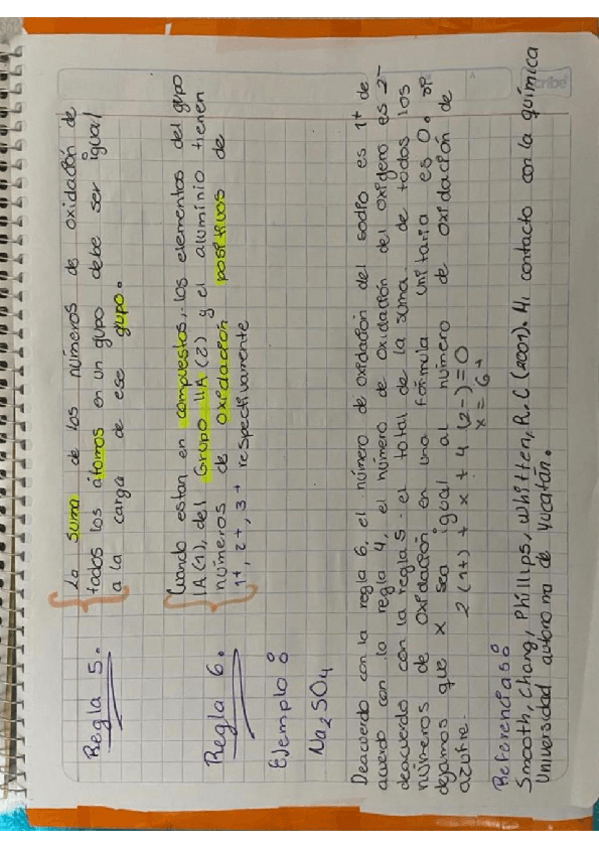 Regla 5. La suma de los números de oxidación de
todos los átomos en un grupo debe ser igual
a la carga de ese grupo.
Regla 6. Cuando estan en compuestos, los elementos del grupo
IA (1), del Grupo IIA (2) y el aluminio tienen
números de oxidación positivos de
1+, 2+, 3+ respectivamente
Ejemplo:
Na2SO4
Deacuerdo con la regla 6, el número de oxidación del sodio es 1+ de
acuerdo con la regla 4, el número de oxidación del oxígeno es 2-
deacuerdo con la regla 5. el total de la suma de todos los
números de oxidación en una fórmula unitaria es 0. si
dejamos que x sea igual al número de oxidación de
azufre. 2 (1+) + x + 4 (2-) = 0
x = 6+
Referencias:
Smooth, Chang, Phillips, Whitten, R.C (2001). Mi contacto con la química
Universidad autonoma de Yucatán.